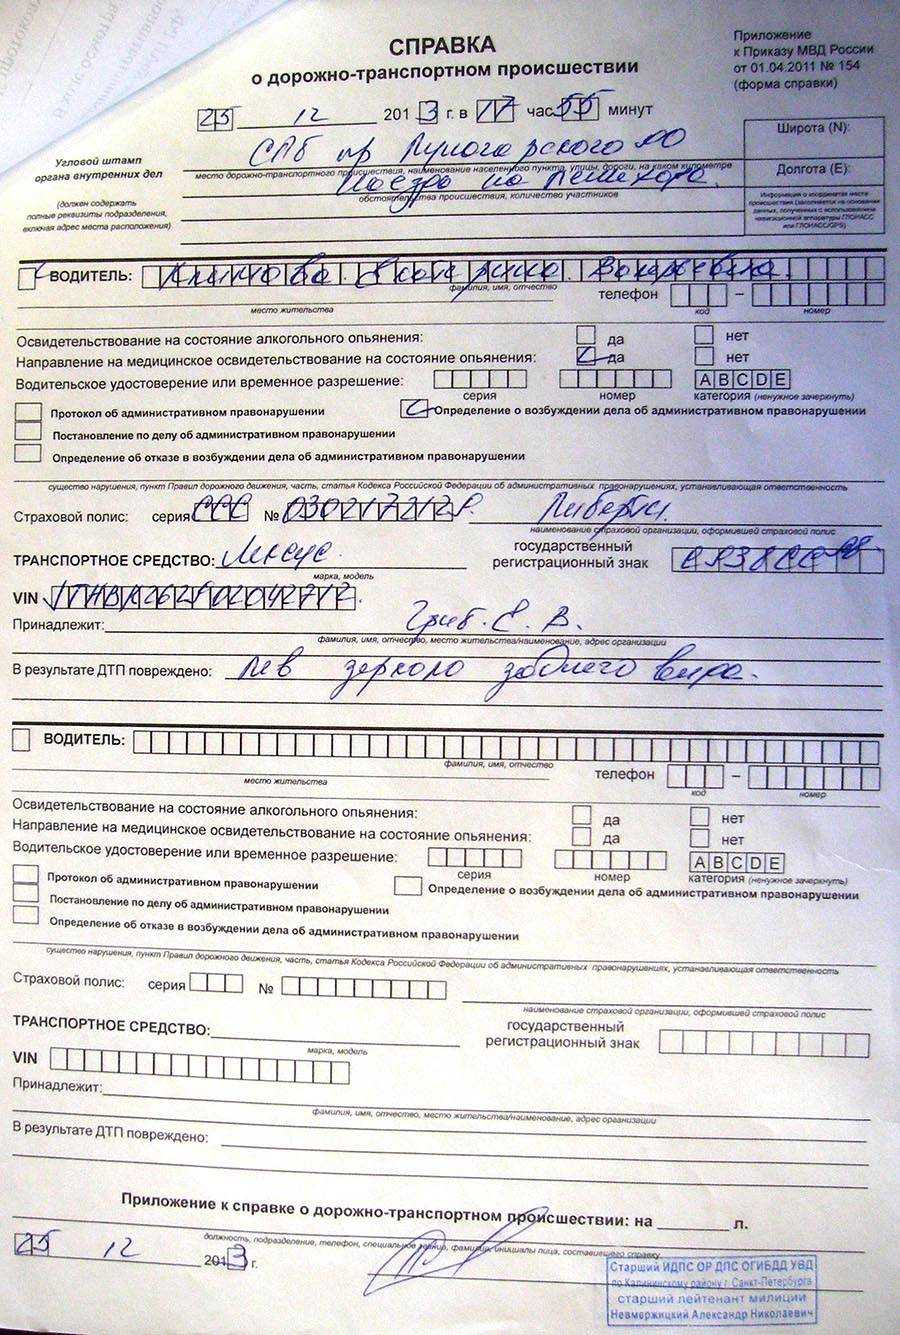 СПРАВКА
о дорожно-транспортном происшествии
Приложение
к Приказу МВД России
от 01.04.2011 № 154
(форма справки)
25 12 2013 г. в 17 час 55 минут
Угловой штамп
органа внутренних дел
(должен содержать
полные реквизиты подразделения,
включая адрес места расположения)
СПб пр Луначарского
место дорожно-транспортного происшествия, наименование населенного пункта, улицы, дороги, на каком километре
Наезд на пешехода.
обстоятельства происшествия, количество участников
Широта (N):
Долгота (E):
Информация о координатах места
происшествия (заполняется на основании
данных, полученных с использованием
навигационной аппаратуры ГЛОНАСС
или ГЛОНАСС/GPS)
ВОДИТЕЛЬ: Екатерина Валерьевна.
фамилия, имя, отчество
телефон –
место жительства
код номер
Освидетельствование на состояние алкогольного опьянения: да нет
Направление на медицинское освидетельствование на состояние опьянения: да нет
Водительское удостоверение или временное разрешение: A B C D E
серия номер категория (ненужное зачеркнуть)
Протокол об административном правонарушении
Определение о возбуждении дела об административном правонарушении
Постановление по делу об административном правонарушении
Определение об отказе в возбуждении дела об административном правонарушении
существо нарушения, пункт Правил дорожного движения, часть, статья Кодекса Российской Федерации об административных правонарушениях, устанавливающая ответственность
Страховой полис: серия ССС №
наименование страховой организации, оформившей страховой полис
ТРАНСПОРТНОЕ СРЕДСТВО: Лексус.
государственный
регистрационный знак
марка, модель
VIN
Принадлежит: Е. В.
фамилия, имя, отчество, место жительства/наименование, адрес организации
В результате ДТП повреждено: лев зеркало заднего вида.
ВОДИТЕЛЬ:
фамилия, имя, отчество
телефон –
место жительства
код номер
Освидетельствование на состояние алкогольного опьянения: да нет
Направление на медицинское освидетельствование на состояние опьянения: да нет
Водительское удостоверение или временное разрешение: A B C D E
серия номер категория (ненужное зачеркнуть)
Протокол об административном правонарушении
Определение о возбуждении дела об административном правонарушении
Постановление по делу об административном правонарушении
Определение об отказе в возбуждении дела об административном правонарушении
существо нарушения, пункт Правил дорожного движения, часть, статья Кодекса Российской Федерации об административных правонарушениях, устанавливающая ответственность
Страховой полис: серия №
наименование страховой организации, оформившей страховой полис
ТРАНСПОРТНОЕ СРЕДСТВО:
государственный
регистрационный знак
марка, модель
VIN
Принадлежит:
фамилия, имя, отчество, место жительства/наименование, адрес организации
В результате ДТП повреждено:
Приложение к справке о дорожно-транспортном происшествии: на л.
должность, подразделение, телефон, специальное звание, фамилия, инициалы лица, составившего справку
25 12 2013 г.
Старший ИДПС ОР ДПС ОГИБДД УВД
по Калининскому району г. Санкт-Петербурга
старший лейтенант милиции
Невмержицкий Александр Николаевич